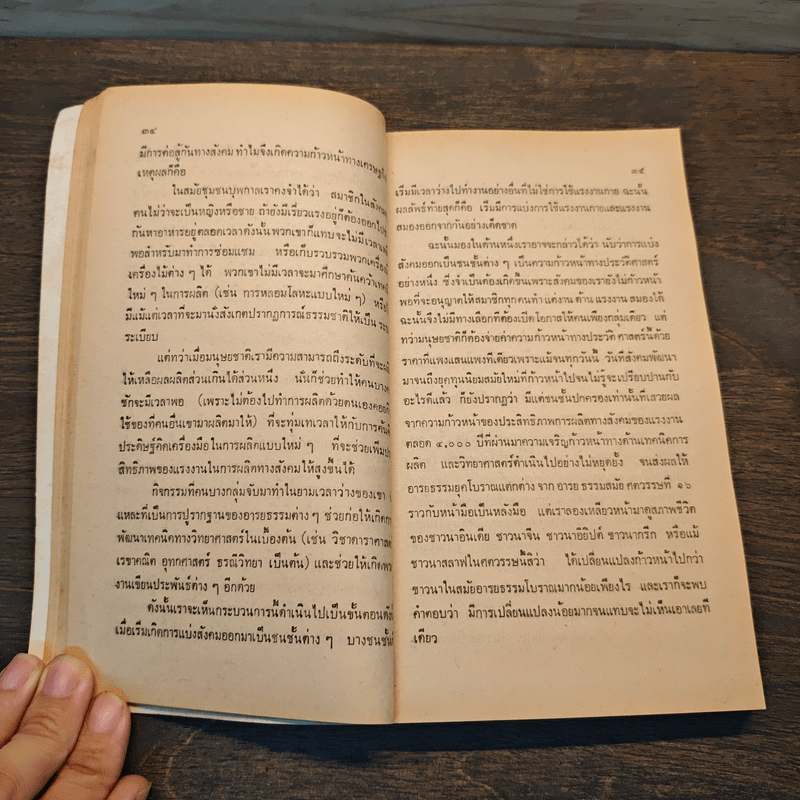 ๓๔
มีการต่อสู้กันทางสังคม ทำไมจึงเกิดความก้าวหน้าทางเศรษฐกิจ
เหตุผลก็คือ
ในสมัยชุมชนบุพกาลเราคงจำได้ว่า สมาชิกในสังคม
คนไม่ว่าจะเป็นหญิงหรือชาย ถ้ายังมีเรี่ยวแรงอยู่ก็ต้องออกไป
กันหาอาหารอยู่ตลอดเวลาดังนั้นพวกเขาก็แทบจะไม่มีเวลา
พอสำหรับมาทำการซ่อมแซม หรือเก็บรวบรวมพวกเครื่อง
เครื่องไม้ต่าง ๆ ได้ พวกเขาไม่มีเวลาจะมาศึกษาค้นคว้าเทค
ใหม่ ๆ ในการผลิต (เช่น การหลอมโลหะแบบใหม่ ๆ) หรือ
มีแม้แต่เวลาที่จะมานั่งสังเกตปรากฏการณ์ธรรมชาติให้เป็น ระ
ระเบียบ
แต่ทว่าเมื่อมนุษยชาติเรามีความสามารถถึงระดับที่จะ
ให้เหลือผลผลิตส่วนเกินได้ส่วนหนึ่ง นั่นก็ช่วยทำให้คนบาง
ซักจะมีเวลาพอ (เพราะไม่ต้องไปทำการผลิตด้วยตนเองคอย
ใช้ของที่คนอื่นเขามาผลิตมาให้) ที่จะทุ่มเทเวลาให้กับการค้น
ประดิษฐ์คิดเครื่องมือในการผลิตแบบใหม่ ๆ ที่จะช่วยเพิ่มป
สิทธิภาพของแรงงานในการผลิตทางสังคมให้สูงขึ้นได้
กิจกรรมที่คนบางกลุ่มจับมาทำในยามเวลาว่างของเขา
แหละที่เป็นการปูรากฐานของอารยธรรมต่าง ๆ ช่วยก่อให้เกิดกา
พัฒนาเทคนิคทางวิทยาศาสตร์ในเบื้องต้น (เช่น วิชาดาราศาส
เรขาคณิต อุทกศาสตร์ ธรณีวิทยา เป็นต้น) และช่วยให้เกิดพว
งานเขียนประพันธ์ต่าง ๆ อีกด้วย
ดังนั้นเราจะเห็นกระบวนการนี้ดำเนินไปเป็นขั้นตอนดัง
เมื่อเริ่มเกิดการแบ่งสังคมออกมาเป็นชนชั้นต่าง ๆ บางชนชั้น
๓๕
เริ่มมีเวลาว่างไปทำงานอย่างอื่นที่ไม่ใช่การใช้แรงงานกาย ฉะนั้น
ผลลัพธ์ท้ายสุดก็คือ เริ่มมีการแบ่งการใช้แรงงานกายและแรงงาน
สมองออกจากกันอย่างเด็ดขาด
ฉะนั้นมองในด้านหนึ่งเราอาจจะกล่าวได้ว่า นับว่าการแบ่ง
สังคมออกเป็นชนชั้นต่าง ๆ เป็นความก้าวหน้าทางประวัติศาสตร์
อย่างหนึ่ง ซึ่งจำเป็นต้องเกิดขึ้นเพราะสังคมของเรายังไม่ก้าวหน้า
พอที่จะอนุญาตให้สมาชิกทุกคนทำ แต่งาน ด้าน แรงงาน สมองได้
ฉะนั้นจึงไม่มีทางเลือกที่ต้องเปิดโอกาสให้คนเพียงกลุ่มเดียว แต่
ทว่ามนุษยชาติก็ต้องจ่ายค่าความก้าวหน้าทางประวัติ ศาสตร์นี้ด้วย
ราคาที่แพงแสนแพงทีเดียวเพราะแม้จนทุกวันนี้ วันที่สังคมพัฒนา
มาจนถึงยุคทุนนิยมสมัยใหม่ที่ก้าวหน้าไปจนไม่รู้จะเปรียบปานกับ
อะไรดีแล้ว ก็ยังปรากฏว่า มีแต่ชนชั้นปกครองเท่านั้นที่เสวยผล
จากความก้าวหน้าของประสิทธิภาพการผลิตทางสังคมของแรงงาน
ตลอด ๔,๐๐๐ ปีที่ผ่านมาความเจริญก้าวหน้าทางด้านเทคนิคการ
ผลิต และวิทยาศาสตร์ดำเนินไปอย่างไม่หยุดยั้ง จนส่งผลให้
อารยธรรมยุคโบราณแตกต่าง จาก อารย ธรรมสมัย ศตวรรษที่ ๑๖
ราวกับหน้ามือเป็นหลังมือ แต่เราลองเหลียวหน้ามาดูสภาพชีวิต
ของชาวนาอินเดีย ชาวนาจีน ชาวนาอียิปต์ ชาวนากรีก หรือแม้
ชาวนาสลาฟในศตวรรษนี้สิว่า ได้เปลี่ยนแปลงก้าวหน้าไปกว่า
ชาวนาในสมัยอารยธรรมโบราณมากน้อยเพียงไร และเราก็จะพบ
คำตอบว่า มีการเปลี่ยนแปลงน้อยมากจนแทบจะไม่เห็นเอาเลยที
เดียว